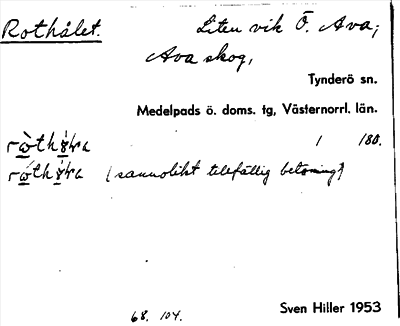 Rothålet. Liten vik Ö. Ava;
Ava skog,
Tynderö sn.
Medelpads ö. doms. tg, Västernorrl. län.
1 180.
(sannolikt tillfällig betoning)
68. 104.
Sven Hiller 1953